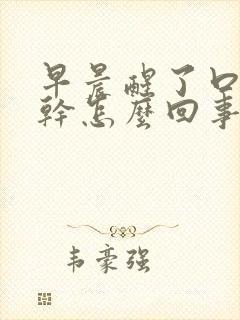 早晨醒了口
幹怎麼回事
韦豪强